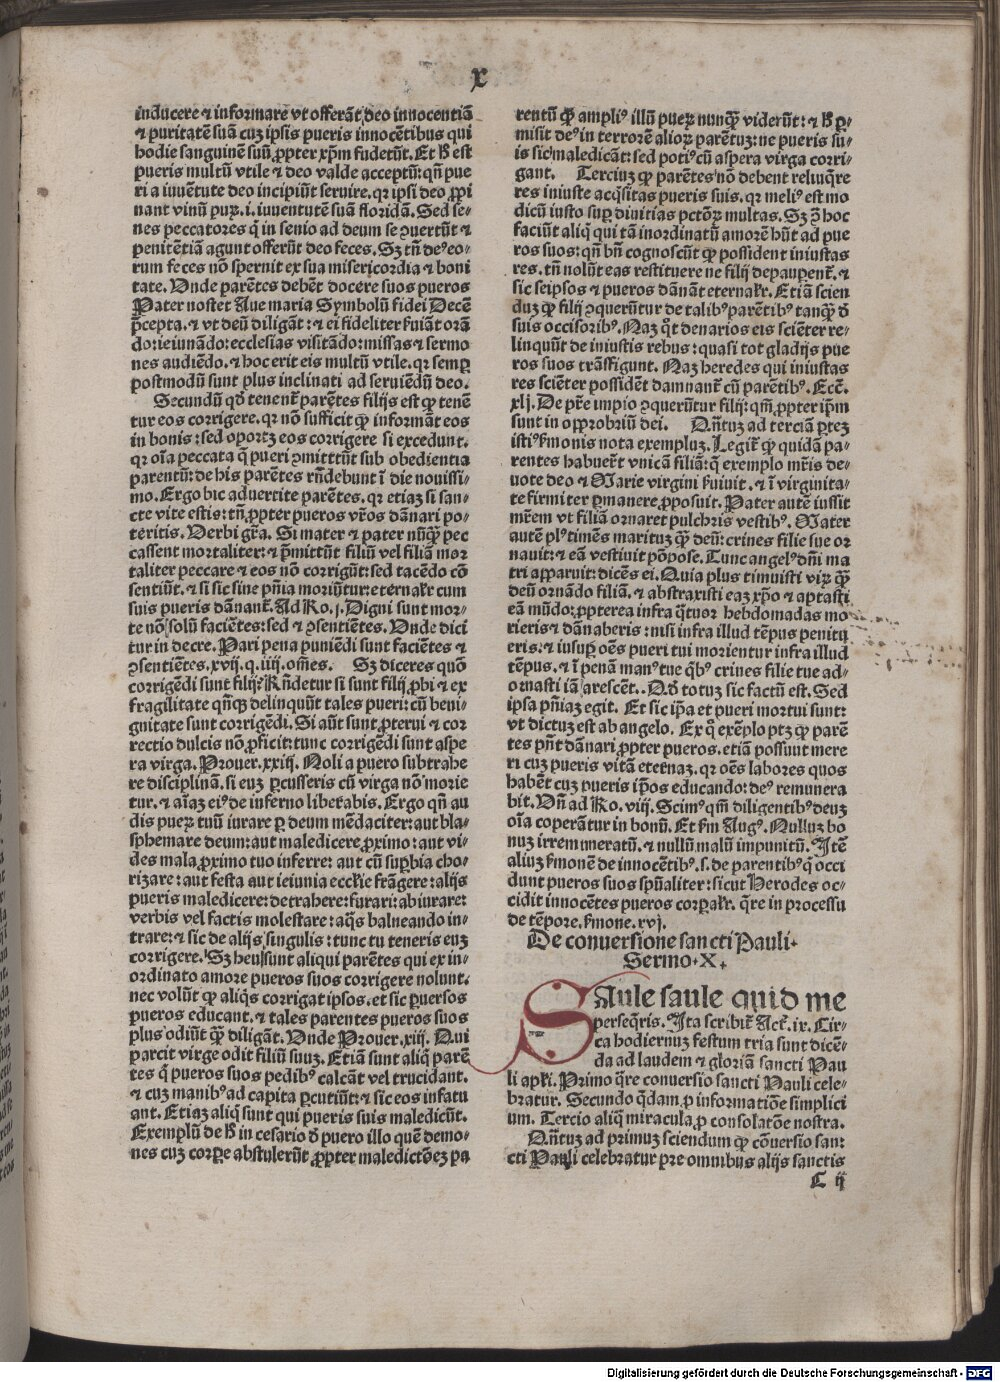 x
inducere ⁊ informare vt offerāt deo innocentiā
⁊ puritatē suā cuz ipsis pueris innocētibus qui
hodie sanguinē suū ꝓpter xp̄m fuderūt. Et ħ est
pueris multū vtile ⁊ deo valde acceptū: qn̄ pue
ri a iuuētute deo incipiūt seruire. qꝛ ipsi deo ꝓpi
nant vinū puꝝ .i. iuuentutē suā floridā. Sed se⸗
nes peccatores q̇ in senio ad deum se ꝯuertūt ⁊
penitētiā agunt offerūt deo feces. Sꝫ tn̄ deꝰ eo⸗
rum feces nō spernit ex sua misericordia ⁊ boni
tate. Vnde parētes debēt docere suos pueros
Pater noster Aue maria Symbolū fidei Decē
p̄cepta. ⁊ vt deū diligāt: ⁊ ei fideliter ẜuiāt orā
do: ieiunādo: ecclesias visitādo: missas ⁊ sermo
nes audiēdo. ⁊ hoc erit eis multū vtile. qꝛ semꝑ
postmodū sunt plus inclinati ad seruiēdū deo.
Secundū qď tenent̄ parētes filijs est ꝙ tenē
tur eos corrigere. qꝛ nō sufficit ꝙ informāt eos
in bonis: sed oportꝫ eos corrigere si excedunt.
qꝛ oīa peccata q̄ pueri ꝯmittūt sub obedientia
parentū: de his parētes rn̄debunt ī die nouissi⸗
mo. Ergo hic aduertite parētes. qꝛ etiaz si san⸗
cte vite estis: tn̄ ꝓpter pueros vr̄os dānari po⸗
teritis. Verbi gr̄a. Si mater ⁊ pater nūq̄ꝫ pec
cassent mortaliter: ⁊ p̄mittūt filiū vel filiā mor
taliter peccare ⁊ eos nō corrigūt: sed tacēdo cō
sentiūt. ⁊ si sic sine pn̄ia moriūtur: eternalr cum
suis pueris dānant̄. Ad Ro. j. Digni sunt mor⸗
te nō solū faciētes: sed ⁊ ꝯsentiētes. Vnde dici
tur in decre. Pari pena puniēdi sunt faciētes ⁊
ꝯsentiētes. xvij. q. iiij. om̄es. Sꝫ diceres quō
corrigēdi sunt filij? Rn̄detur si sunt filij ꝓbi ⁊ ex
fragilitate qn̄qꝫ delinquūt tales pueri: cū beni⸗
gnitate sunt corrigēdi. Si aūt sunt ꝓterui ⁊ cor
rectio dulcis nō ꝓficit: tunc corrigēdi sunt aspe
ra virga. Prouer. xxiij. Noli a puero subtrahe
re disciplinā. si euz ꝑcusseris cū virga nō morie
tur. ⁊ aīaz eiꝰ de inferno liberabis. Ergo qn̄ au
dis pueꝝ tuū iurare ꝑ deum mēdaciter: aut bla⸗
sphemare deum: aut maledicere ꝓximo: aut vi⸗
des mala ꝓximo tuo inferre: aut cū suꝑbia cho⸗
rizare: aut festa aut ieiunia eccl̄ie frāgere: alijs
pueris maledicere: detrahere: furari: abiurare:
verbis vel factis molestare: aq̄s balneando in⸗
trare: ⁊ sic de alijs singulis: tunc tu teneris euz
corrigere. Sꝫ heu sunt aliqui parētes qui ex in⸗
ordinato amore pueros suos corrigere nolunt.
nec volūt ꝙ aliq̇s corrigat ipsos. et sic ꝑuersos
pueros educant. ⁊ tales parentes pueros suos
plus odiūt q̄ꝫ diligāt. Vnde Prouer. xiij. Qui
parcit virge odit filiū suuz. Etiā sunt aliq̇ parē
tes q̇ pueros suos pedibꝰ calcāt vel trucidant.
⁊ cuz manibꝰ ad capita ꝑcutiūt: ⁊ sic eos infatu
ant. Etiaz aliq̇ sunt qui pueris suis maledicūt.
Exemplū de ħ in cesario ď puero illo quē demo⸗
nes cuz corꝑe abstulerūt ꝓpter maledictōez pa
rentū ꝙ ampliꝰ illū pueꝝ nunq̄ꝫ viderūt: ⁊ ħ ꝑ⸗
misit deꝰ in terrorē alioꝝ parētuz: ne pueris su⸗
is sic maledicāt: sed potiꝰ cū aspera virga corri⸗
gant. Terciuz ꝙ parētes nō debent relinq̄re
res iniuste acq̇sitas pueris suis. qꝛ meliꝰ est mo
dicū iusto suꝑ diuitias pctōꝝ multas. Sꝫ ꝯ̄ hoc
faciūt aliq̇ qui tā inordinatū amorē hn̄t ad pue
ros suos: qn̄ bn̄ cognoscūt ꝙ possident iniustas
res. tn̄ nolūt eas restituere ne filij depauꝑent̄. ⁊
sic seipsos ⁊ pueros dānāt eternalr. Etiā scien
duz ꝙ filij ꝯquerūtur de talibꝰ parētibꝰ tanq̄ꝫ ď
suis occisoribꝰ. Naz q̇t denarios eis sciēter re⸗
linquūt de iniustis rebus: quasi tot gladijs pue
ros suos trāsfigunt. Naz heredes qui iniustas
res sciēter possidēt damnant̄ cū parētibꝰ. Ecc̄.
xlj. De pr̄e impio ꝯquerūtur filij: qm̄ ꝓpter ip̄m
sunt in opꝓbriū dei. Q̄ntuz ad terciā ꝑtez
isti ẜmonis nota exempluz. Legit̄ ꝙ quidā pa⸗
rentes habuerūt vnicā filiā: q̄ exemplo mr̄is de⸗
uote deo ⁊ Marie virgini ẜuiuit. ⁊ ī virginita⸗
te firmiter ꝑmanere ꝓposuit. Pater autē iussit
mr̄em vt filiā ornaret pulchris vestibꝰ. Mater
autē plꝰ timēs marituz q̄ꝫ deū: crines filie sue or
nauit: ⁊ eā vestiuit pōpose. Tunc angelꝰ dn̄i ma
tri apparuit: dicēs ei. Quia plus timuisti viꝝ q̄ꝫ
deū ornādo filiā. ⁊ abstraxisti eaz xp̄o ⁊ aptasti
eā mūdo: ꝓpterea infra q̇tuor hebdomadas mo
rieris ⁊ dānaberis: nisi infra illud tēpus penitu
eris. ⁊ insuꝑ oēs pueri tui morientur infra illud
tēpus. ⁊ ī penā manꝰ tue q̇bꝰ crines filie tue ad⸗
ornasti iā arescēt. Qď totuz sic factū est. Sed
ipsa pn̄iaz egit. Et sic ip̄a et pueri mortui sunt:
vt dictuz est ab angelo. Ex q̇ exēplo ptꝫ ꝙ parē
tes pn̄t dānari ꝓpter pueros. etiā possunt mere
ri cuz pueris vitā eternaz. qꝛ oēs labores quos
habēt cuz pueris ip̄os educando: deꝰ remunera
bit. Vn̄ ad Ro. viij. Scimꝰ qm̄ diligentibꝰ deuz
oīa coperātur in bonū. Et ẜm Augꝰ. Nulluz bo
nuz irremuneratū. ⁊ nullū malū impunitū. Itē
aliuz ẜmonē de innocētibꝰ .s. de parentibꝰ q̇ occi
dunt pueros suos spūaliter: sicut Herodes oc⸗
cidit innocētes pueros corꝑalr. q̄re in processu
de tēpore. ẜmone. xvj.
De conuersione sancti Pauli.
Sermo. X.
SAule saule quid me
perseq̄ris. Ita scribit̄ Act̄. ix. Cir⸗
ca hodiernuz festum tria sunt dicē⸗
da ad laudem ⁊ gloriā sancti Pau
li apl̄i. Primo q̄re conuersio sancti Pauli cele⸗
bratur. Secundo q̄dam ꝓ informatiōe simplici
um. Tercio aliq̄ miracula ꝓ consolatōe nostra.
Q̄ntuz ad primuz sciendum ꝙ cōuersio san⸗
cti Pauli celebratur pre omnibus alijs sanctis
C ij
Digitalisierung gefördert durch die Deutsche Forschungsgemeinschaft - DFG